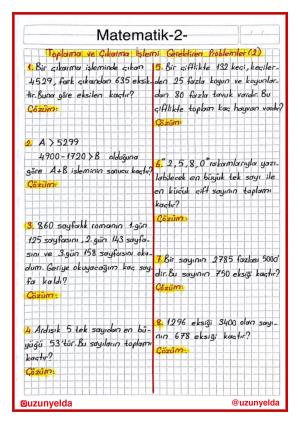 Matematik-2-
Toplama ve Çıkarma İşlemi Gerektiren Problemler (2)
1. Bir çıkarma işleminde çıkan
4529, fark çıkandan 635 eksik-
tir. Buna göre eksilen kaçtır?
Çözüm:
2. A > 5299
4900-1720 > B olduğuna
göre A+B işleminin sonucu kaçtır?
Çözüm:
3. 860 sayfalık romanın 1.gün
125 sayfasını, 2.gün 143 sayfa-
sını ve 3.gün 158 sayfasını oku-
dum. Geriye okuyacağım kaç say-
fa kaldı?
Çözüm:
4. Ardışık 5 tek sayıdan en bü-
yüğü 53'tür. Bu sayıların toplamı
kaçtır?
Çözüm:
5. Bir çiftlikte 132 keçi, keçiler-
den 25 fazla koyun ve koyunlar-
dan 80 fazla tavuk vardır. Bu
çiftlikte toplam kaç hayvan vardır?
Çözüm:
6. "2,5,8,0" rakamlarıyla yazı-
labilecek en büyük tek sayı ile
en küçük çift sayının toplamı
kaçtır?
Çözüm:
7. Bir sayının 2785 fazlası 5000'
dir. Bu sayının 750 eksiği kaçtır?
Çözüm:
8. 1296 eksiği 3400 olan sayı-
nın 678 eksiği kaçtır?
Çözüm:
@uzunyelda
@uzunyelda